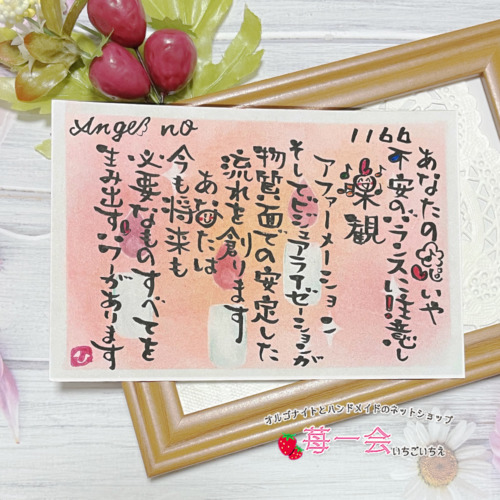 Angel no
1166
あなたの思いや
不安のバランスに注意し
楽観
アファーメーション
そしてビジュアライゼーションが
物質面での安定した
流れを創ります
あなたは
今も将来も
必要なものすべてを
生み出すパワーがあります
オルゴナイトとハンドメイドのネットショップ
苺一会
いちごいちえ